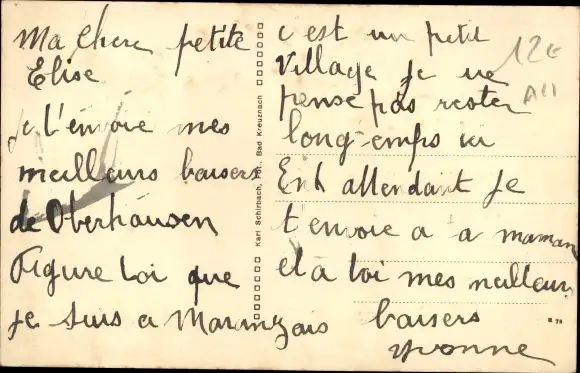 Ma chere petite
Elise
je t'envoie mes
meilleurs baisers
de Oberhausen
Figure toi que
je suis a
c est un petit
village je ne
pense pas rester
longtemps ici
En attendant je
t'envoie a a maman
et a toi mes meilleurs
baisers
Yvonne
12€
All
Karl Schirbach, Fot., Bad Kreuznach